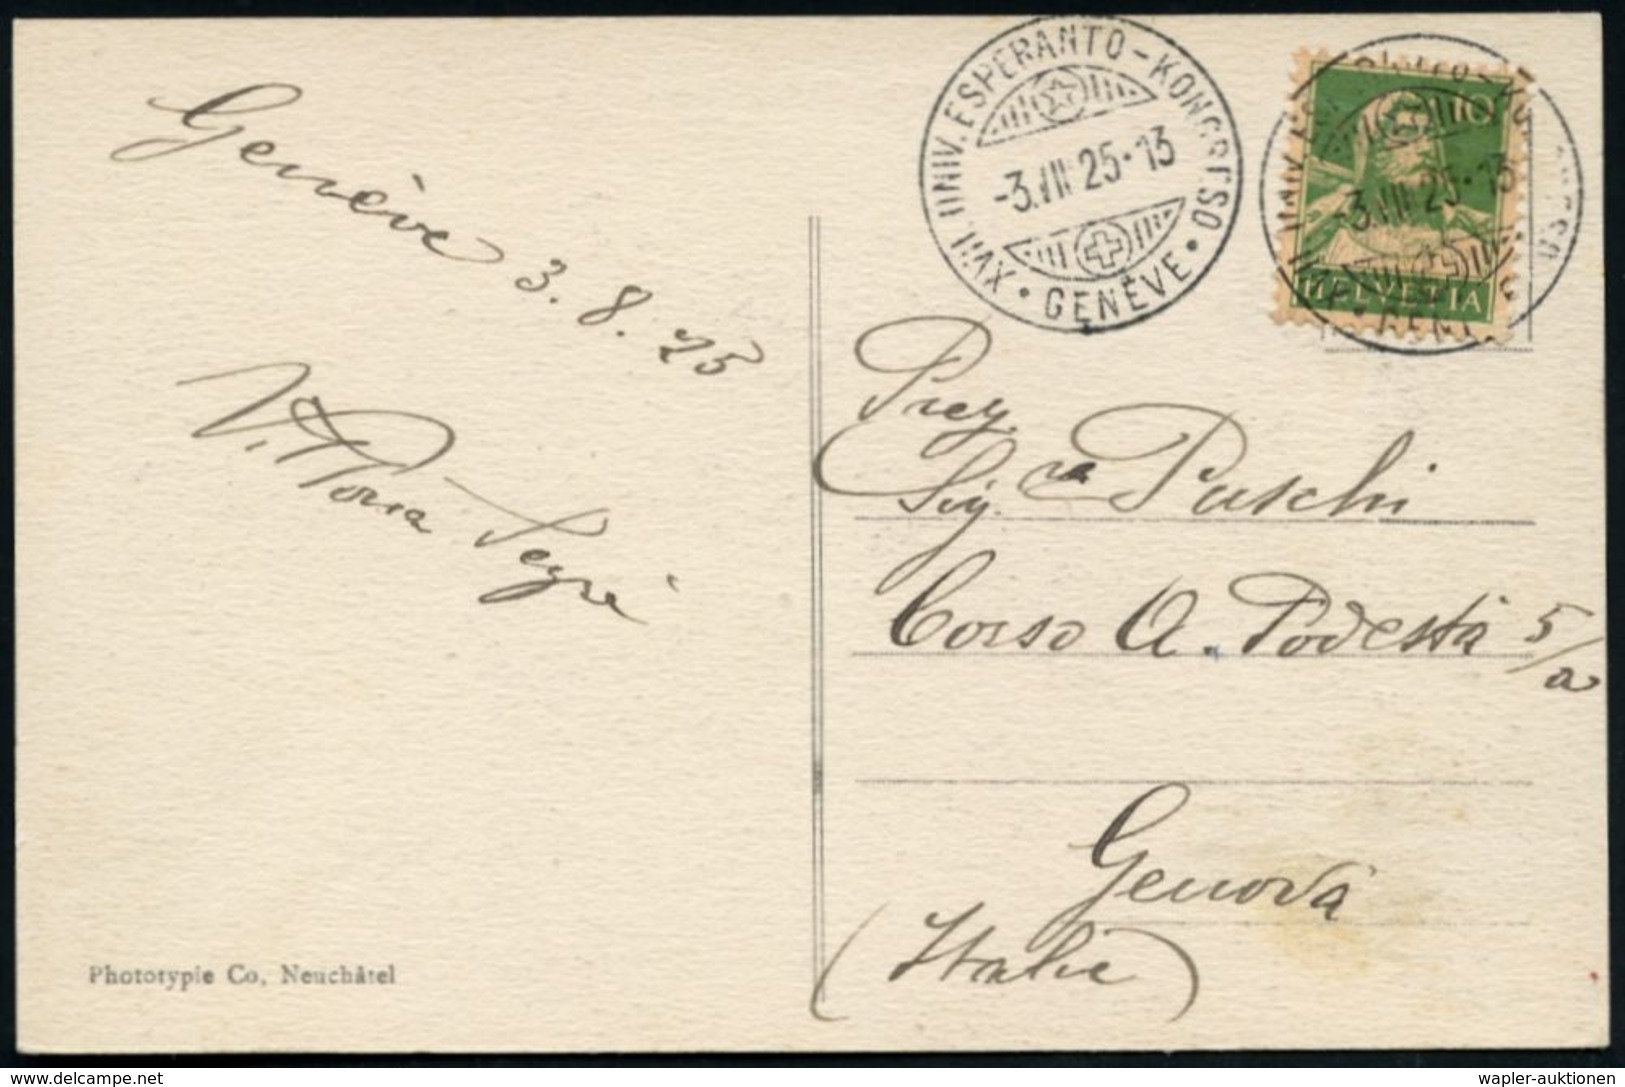 Genève 3. 8. 25
Vittoria Segrè
Phototypie Co, Neuchâtel
XVII. UNIV. ESPERANTO-KONGRESO
-3.VIII 25·13
• GENÈVE •
10
HELVETIA
-3.VIII 25·13
Preg
Sig.ra Paschi
Corso A. Podestà 5/a
Genova
(Italie)
wapler-auktionen